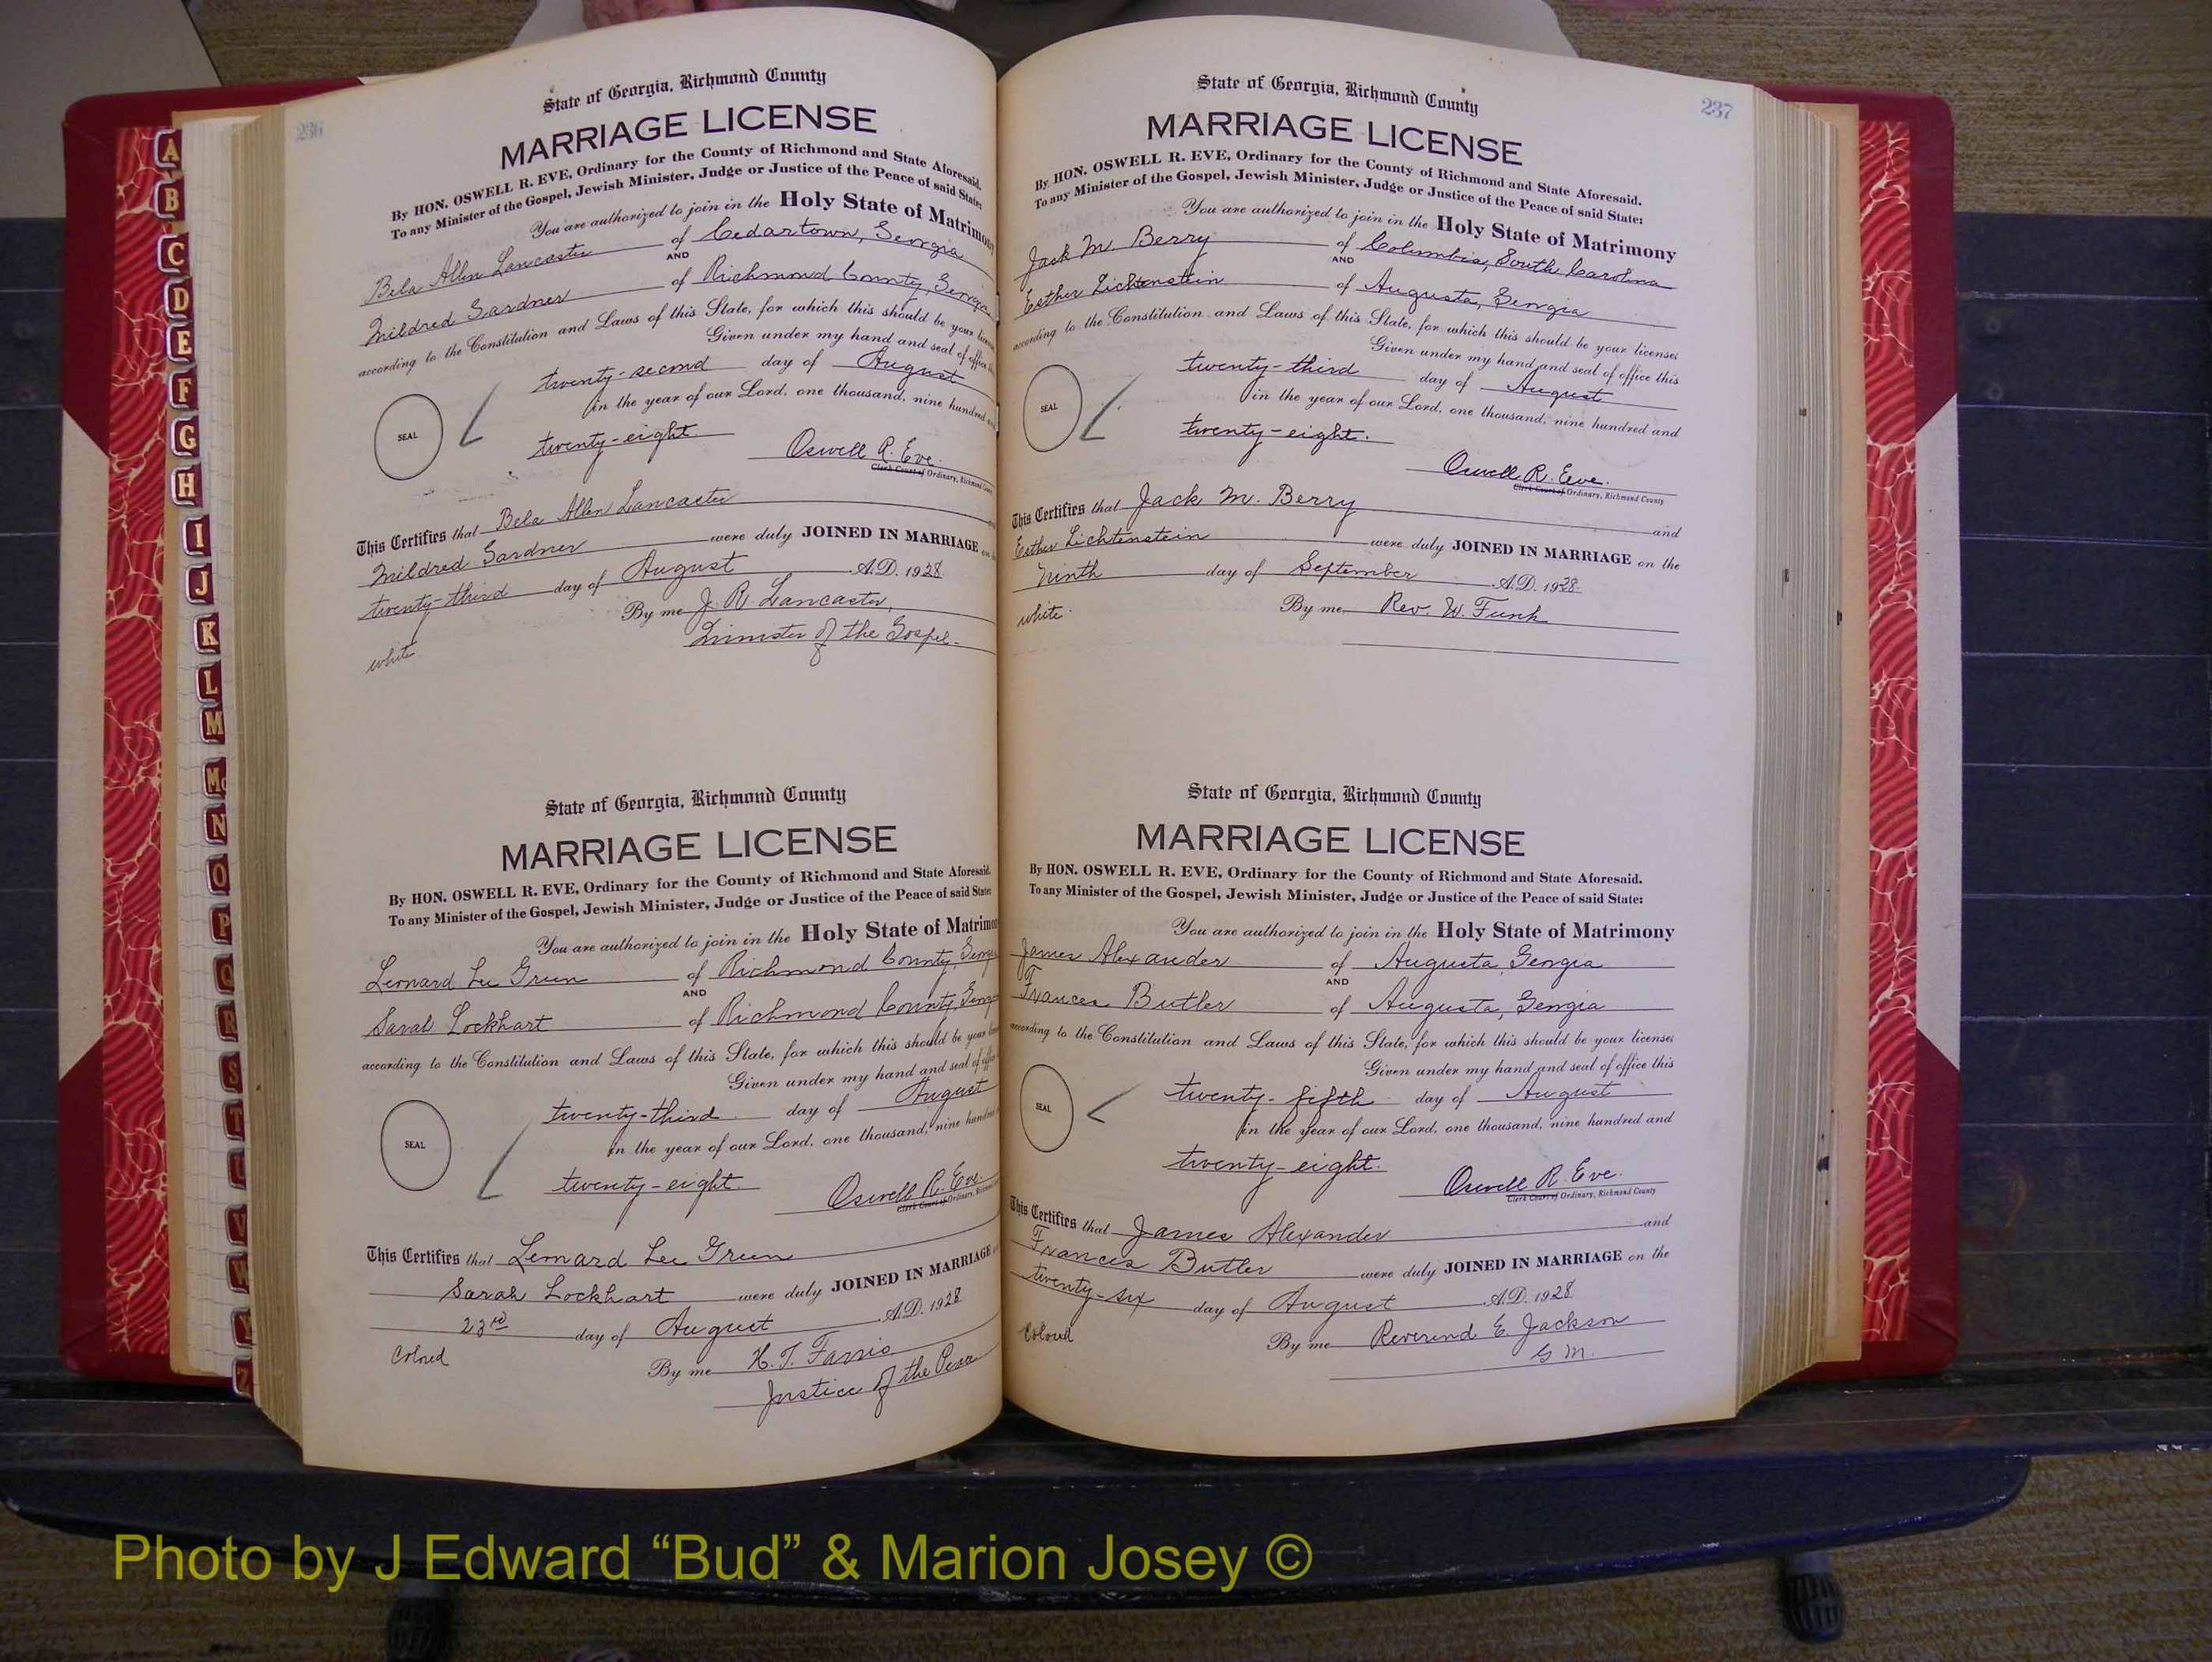 236
State of Georgia, Richmond County
MARRIAGE LICENSE
By HON. OSWELL R. EVE, Ordinary for the County of Richmond and State Aforesaid.
To any Minister of the Gospel, Jewish Minister, Judge or Justice of the Peace of said State:
You are authorized to join in the Holy State of Matrimony
Bela Allen Lancaster of Cedartown, Georgia
AND
Mildred Gardner of Richmond County, Georgia
according to the Constitution and Laws of this State, for which this should be your license
Given under my hand and seal of office
twenty-second day of August
in the year of our Lord, one thousand, nine hundred
SEAL
twenty-eight.
Oswell R. Eve.
Clerk Court of Ordinary, Richmond County
This Certifies that Bela Allen Lancaster
Mildred Gardner were duly JOINED IN MARRIAGE on
twenty-third day of August A.D. 1928
By me J. R. Lancaster,
Minister of the Gospel.
white
State of Georgia, Richmond County
MARRIAGE LICENSE
By HON. OSWELL R. EVE, Ordinary for the County of Richmond and State Aforesaid.
To any Minister of the Gospel, Jewish Minister, Judge or Justice of the Peace of said State:
You are authorized to join in the Holy State of Matrimony
Leonard Lee Green of Richmond County, Georgia
AND
Sarah Lockhart of Richmond County, Georgia
according to the Constitution and Laws of this State, for which this should be your
Given under my hand and seal of office
twenty-third day of August
in the year of our Lord, one thousand, nine hundred
SEAL
twenty-eight.
Oswell R. Eve.
Clerk Court of Ordinary, Richmond
This Certifies that Leonard Lee Green
Sarah Lockhart were duly JOINED IN MARRIAGE
23rd day of August A.D. 1928
Colored
By me H. T. Farris
Justice of the Peace
237
State of Georgia, Richmond County
MARRIAGE LICENSE
By HON. OSWELL R. EVE, Ordinary for the County of Richmond and State Aforesaid.
To any Minister of the Gospel, Jewish Minister, Judge or Justice of the Peace of said State:
You are authorized to join in the Holy State of Matrimony
Jack M. Berry of Columbia, South Carolina
AND
Esther Lichtenstein of Augusta, Georgia
according to the Constitution and Laws of this State, for which this should be your licenses
Given under my hand and seal of office this
twenty-third day of August
in the year of our Lord, one thousand, nine hundred and
SEAL
twenty-eight.
Oswell R. Eve.
Clerk Court of Ordinary, Richmond County
This Certifies that Jack M. Berry and
Esther Lichtenstein were duly JOINED IN MARRIAGE on the
Ninth day of September A.D. 1928.
white.
By me Rev. W. Funk
State of Georgia, Richmond County
MARRIAGE LICENSE
By HON. OSWELL R. EVE, Ordinary for the County of Richmond and State Aforesaid.
To any Minister of the Gospel, Jewish Minister, Judge or Justice of the Peace of said State:
You are authorized to join in the Holy State of Matrimony
James Alexander of Augusta, Georgia
AND
Frances Butler of Augusta, Georgia
according to the Constitution and Laws of this State, for which this should be your licenses
Given under my hand and seal of office this
twenty-fifth day of August
in the year of our Lord, one thousand, nine hundred and
SEAL
twenty-eight.
Oswell R. Eve.
Clerk Court of Ordinary, Richmond County
This Certifies that James Alexander and
Frances Butler were duly JOINED IN MARRIAGE on the
twenty-six day of August A.D. 1928
Colored
By me Reverend E. Jackson
G M.
A
B
C
D
E
F
G
H
I
J
K
L
M
Mc
N
O
P
Q
R
S
T
U
V
W
Y
Z
Photo by J Edward “Bud” & Marion Josey ©